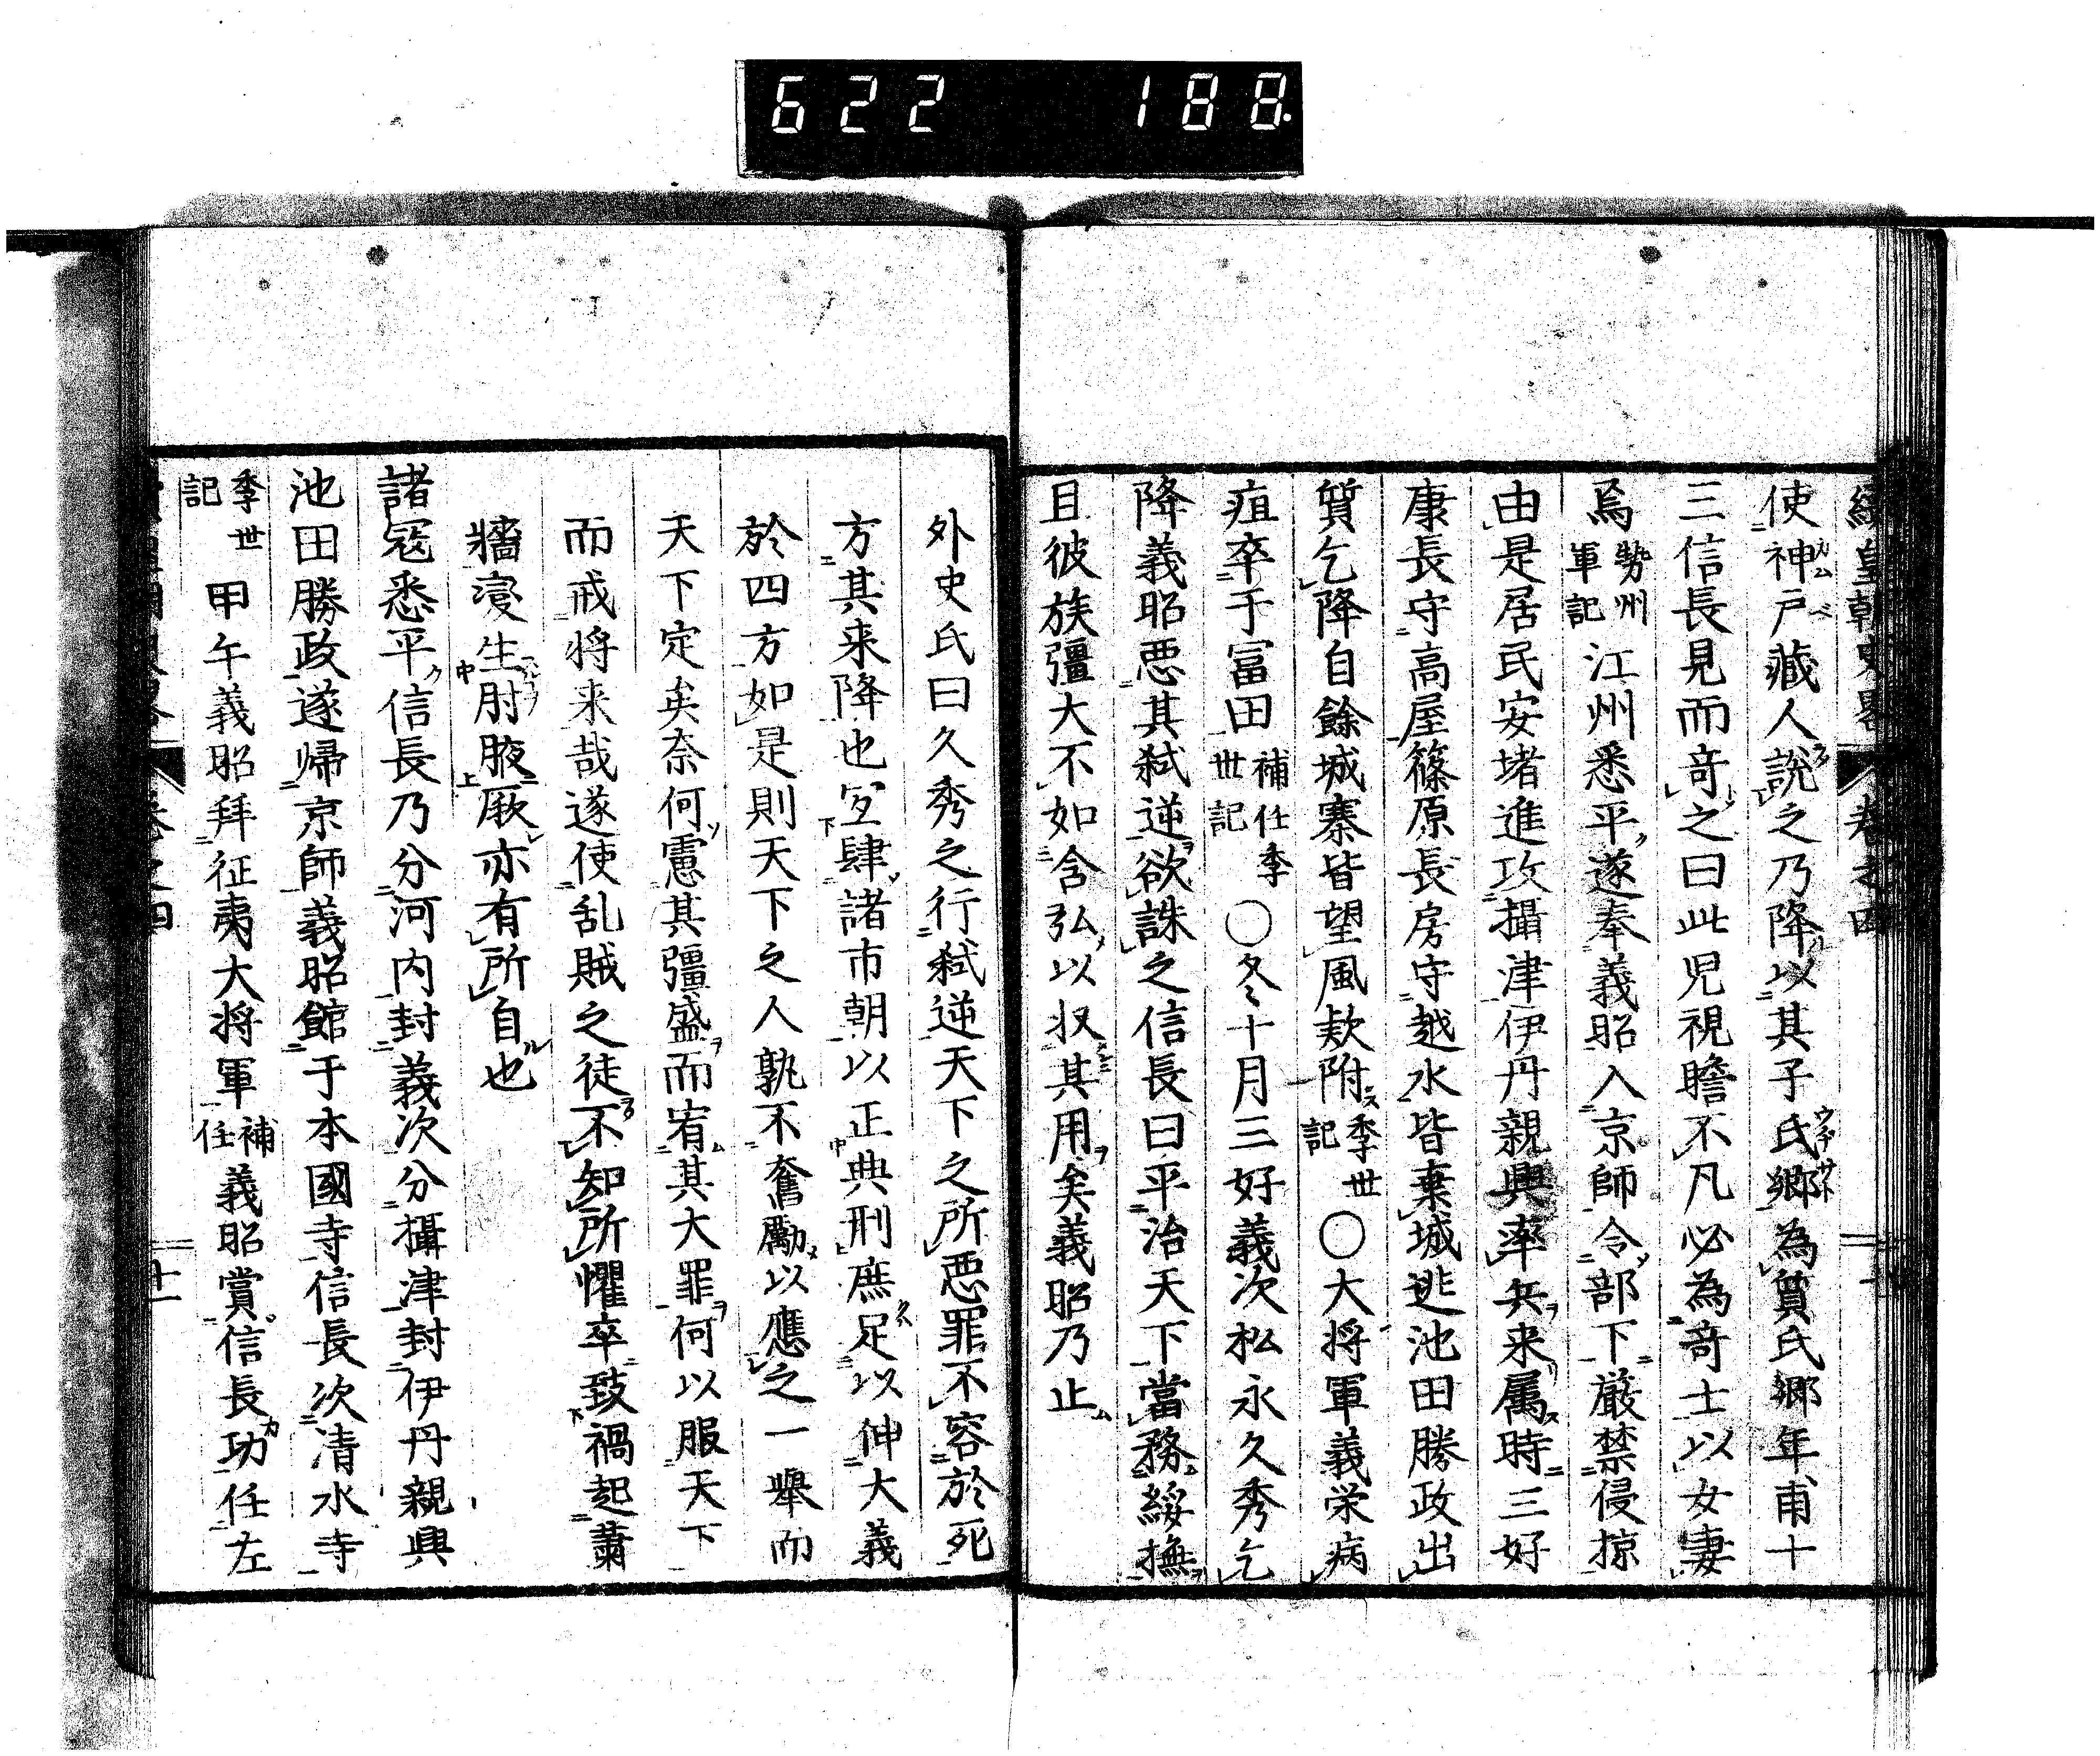 622 188.
續皇朝史畧 卷之四
使神戸藏人說之乃降以其子氏郷為質氏郷年甫十
三信長見而竒之曰此児視瞻不凡必為竒士以女妻
焉勢州軍記江州悉平遂奉義昭入京師令部下嚴禁侵掠
由是居民安堵進攻攝津伊丹親興率兵来属時三好
康長守高屋篠原長房守越水皆棄城逃池田勝政出
質乞降自餘城寨皆望風欵附季世記〇大将軍義栄病
疽卒于冨田補任季世記〇冬十月三好義次松永久秀乞
降義昭悪其弑逆欲誅之信長曰平治天下當務綏撫
且彼族彊大不如含弘以収其用矣義昭乃止
外史氏曰久秀之行弑逆天下之所悪罪不容於死
方其来降也宜肆諸市朝以正典刑庶足以伸大義
於四方如是則天下之人孰不奮勵以應之一舉而
天下定矣奈何憲其彊盛而宥其大罪何以服天下
而戒将来哉遂使乱賊之徒不知所懼卒致禍起蕭
牆変生肘腋厥亦有所自也
諸冦悉平信長乃分河内封義次分攝津封伊丹親興
池田勝政遂帰京師義昭館于本國寺信長次清水寺
季世記甲午義昭拜征夷大将軍補任義昭賞信長功任左
卷之四 十一